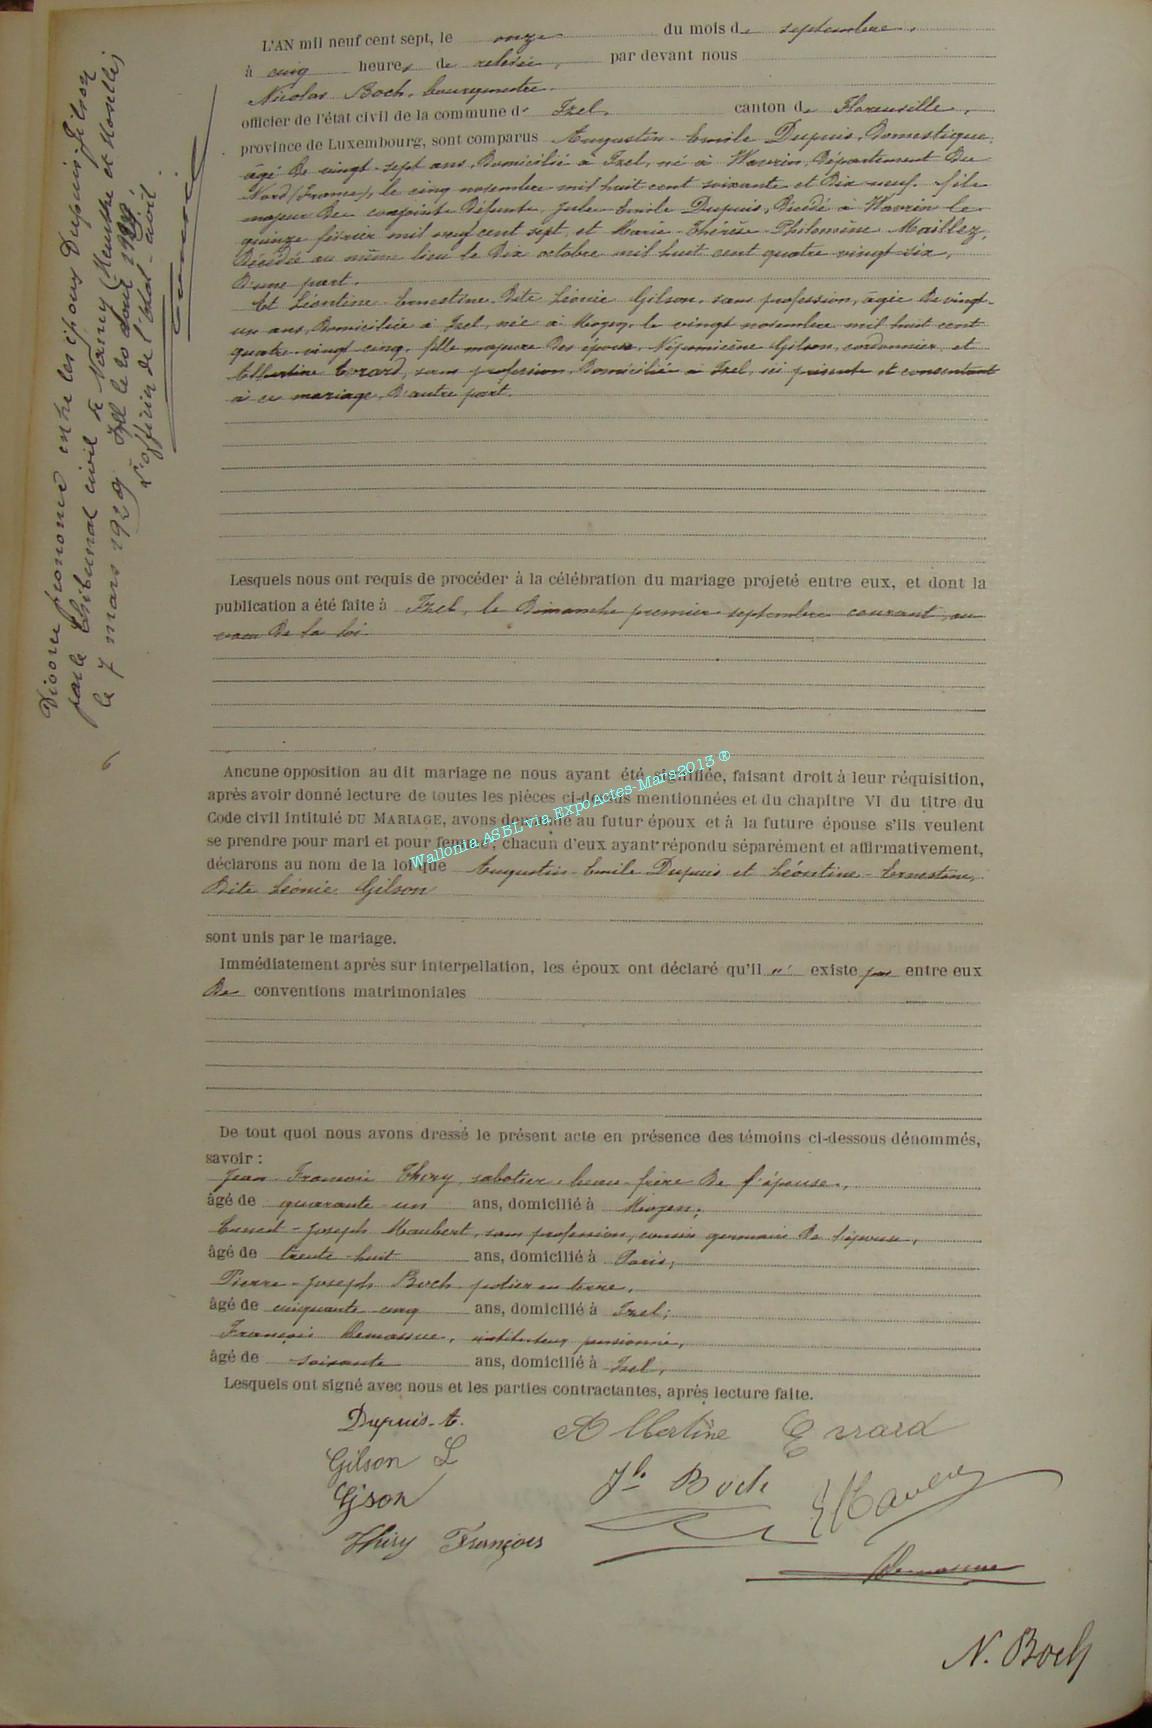 L'AN mil neuf cent sept, le onze du mois de septembre,
à cinq heures de relevée, par devant nous
Nicolas Boch, bourgmestre
officier de l'état civil de la commune d' Izel, canton de Florenville,
province de Luxembourg, sont comparus Augustin-Emile Dupuis, Domestique,
âgé de vingt-sept ans, Domicilié à Izel, né à Wavrin, Département du
Nord (France), le cinq novembre mil huit cent soixante et dix neuf, fils
majeur de conjoints Défunts, Jules Emile Dupuis, Décédé à Wavrin le
quinze février mil neuf cent sept, et Marie-Thérèse-Philomène Maillez,
Décédée au même lieu le Dix octobre mil huit cent quatre vingt-six,
D'une part.
Et Léontine-Ernestine Dite Léonie Gilson, sans profession, âgée de vingt-
un ans, Domiciliée à Izel, née à Moyen, le vingt novembre mil huit cent
quatre-vingt cinq, fille majeure des époux, Népomicène Gilson, cordonnier, et
Albertine Evrard, sans profession, Domiciliés à Izel, ici présents et consentant
à ce mariage, D'autre part.
Lesquels nous ont requis de procéder à la célébration du mariage projeté entre eux, et dont la
publication a été faite à Izel, le Dimanche premier septembre courant, au
vœu De la loi
Aucune opposition au dit mariage ne nous ayant été signifiée, faisant droit à leur réquisition,
après avoir donné lecture de toutes les pièces ci-dessus mentionnées et du chapitre VI du titre du
Code civil intitulé DU MARIAGE, avons demandé au futur époux et à la future épouse s'ils veulent
se prendre pour mari et pour femme, chacun d'eux ayant répondu séparément et affirmativement,
déclarons au nom de la loi que Augustin-Emile Dupuis et Léontine-Ernestine,
Dite Léonie Gilson
sont unis par le mariage.
Immédiatement après sur interpellation, les époux ont déclaré qu'il n' existe pas entre eux
De conventions matrimoniales
De tout quoi nous avons dressé le présent acte en présence des témoins ci-dessous dénommés,
savoir :
Jean-François Thiry, sabotier, beau-frère De l'épouse,
âgé de quarante-un ans, domicilié à Moyen;
Ernest-Joseph Maubert, sans profession, cousin germain De l'épouse,
âgé de trente-huit ans, domicilié à Paris;
Pierre-Joseph Boch, potier en terre,
âgé de cinquante cinq ans, domicilié à Izel;
François Demasue, instituteur pensionné,
âgé de soixante ans, domicilié à Izel,
Lesquels ont signé avec nous et les parties contractantes, après lecture faite.
Dupuis. E.
Albertine Evrard
Gilson L
Gison
Jh Boch
Thiry François
N. Boch
Divorce prononcé entre les époux Dupuis-Gilson
par le tribunal civil de Nancy (Meurthe et Moselle)
le 7 mars 1929 Izel le 20 août
L'officier de l'état-civil
Wallonia ASBL via ExpoActes-Mars2013 ®